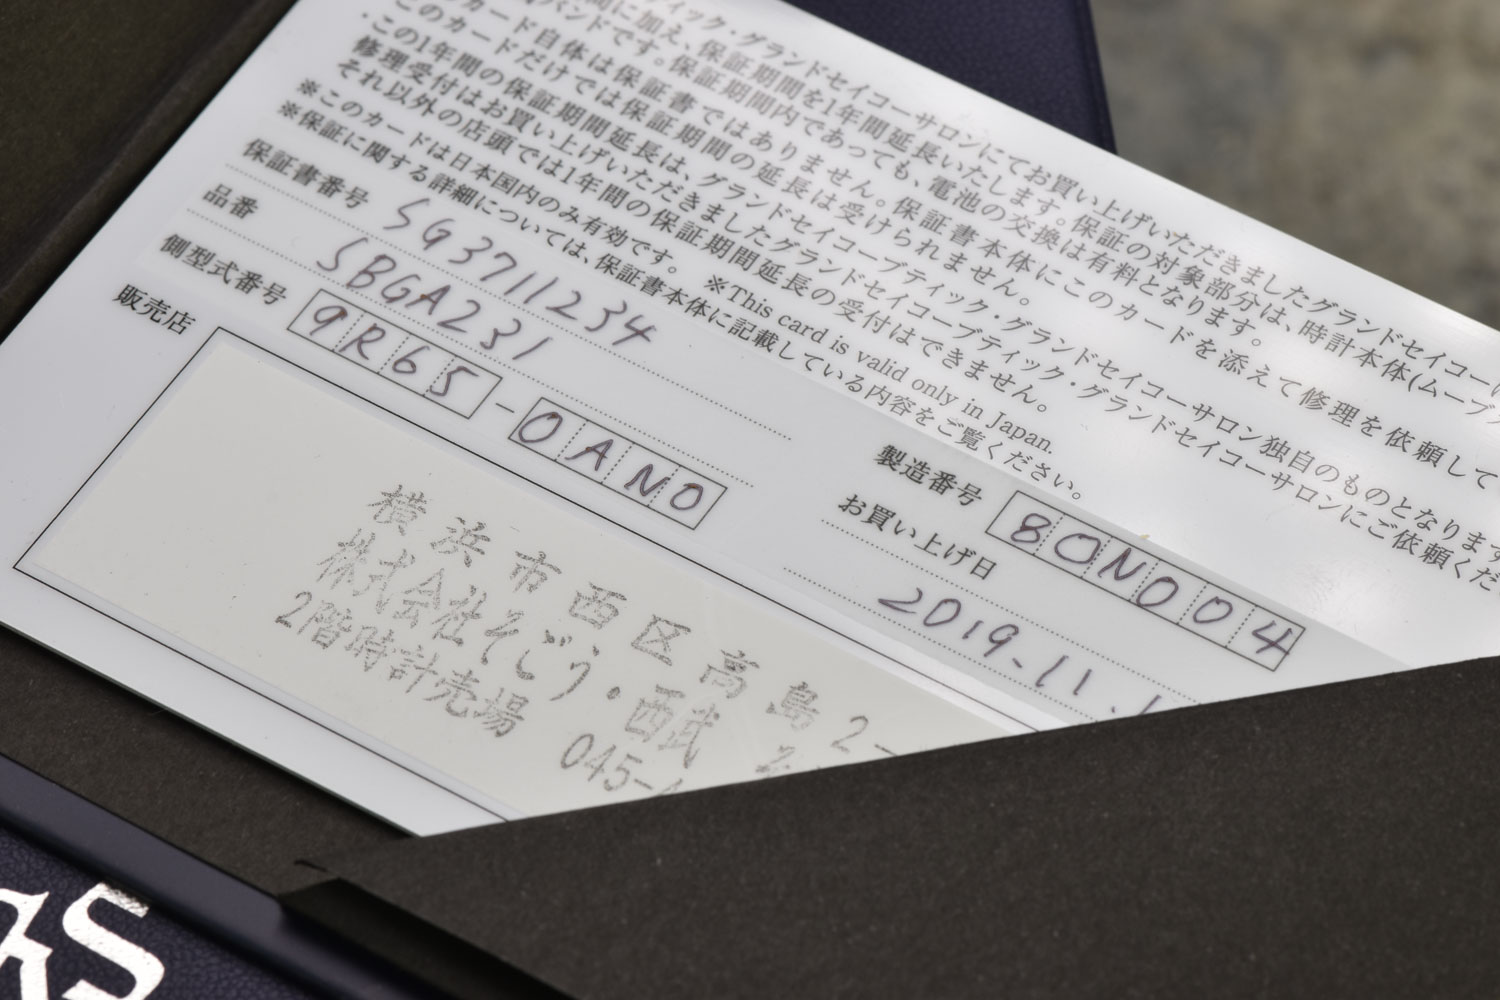 ティック・グランドセイコーサロンにてお買い上げいただきましたグランドセイコー
間に加え、保証期間を1年間延長いたします。保証の対象部分は、時計本体(ムーブ
バンドです。保証期間内であっても、電池の交換は有料となります。
カード自体は保証書ではありません。保証書本体にこのカードを添えて修理を依頼して
このカードだけでは保証期間の延長は受けられません。
・この1年間の保証期間延長は、グランドセイコーブティック・グランドセイコーサロン独自のものとなります
修理受付はお買い上げいただきましたグランドセイコーブティック・グランドセイコーサロンにご依頼くだ
それ以外の店頭では1年間の保証期間延長の受付はできません。
※このカードは日本国内のみ有効です。 ※This card is valid only in Japan.
※保証に関する詳細については、保証書本体に記載している内容をご覧ください。
保証書番号 SG3711234
品番 SBGA231
側型式番号 9R65-0AN0
製造番号 80N004
お買い上げ日 2019.11.1
販売店
横浜市西区高島2-
株式会社そごう・西武
2階時計売場 045-4
KS